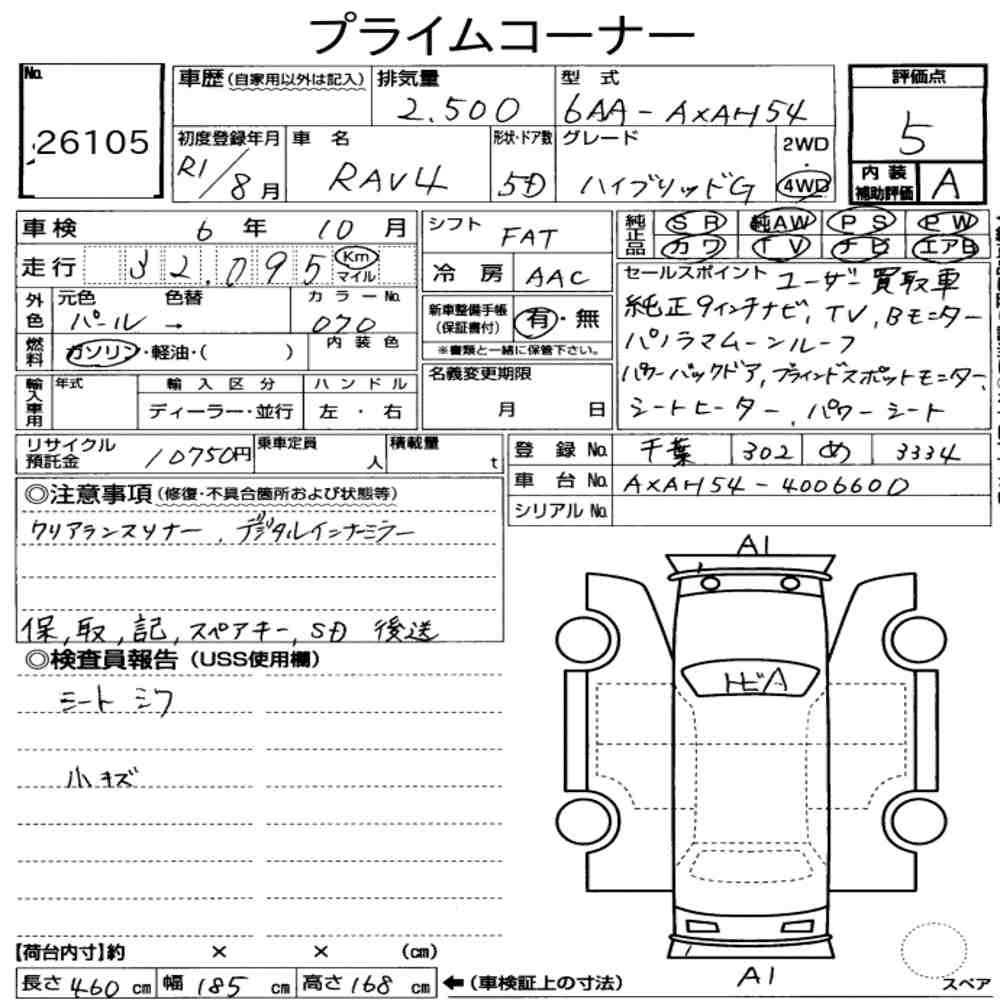 プライムコーナー
No. 26105
車歴(自家用以外は記入) 排気量 2.500 型式 6AA-AXAH54 評価点 5
初度登録年月 R1/8月 車名 RAV4 形状・ドア数 5D グレード ハイブリッドG 2WD・4WD 内装補助評価 A
車検 6年 10月 シフト FAT 純正品 SR 純AW PS PW
走行 32.095 Km マイル 冷房 AAC カワ TV ナビ エアB
外色 元色 パール → 色替 カラーNo. 070 新車整備手帳(保証書付) 有・無 ※書類と一緒に保管下さい。
燃料 ガソリン・軽油・( ) 内装色
セールスポイント ユーザー買取車
純正9インチナビ, TV, Bモニター
パノラマムーンルーフ
パワーバックドア, ブラインドスポットモニター,
シートヒーター, パワーシート
輸入車用 年式 輸入区分 ディーラー・並行 ハンドル 左・右 名義変更期限 月 日
リサイクル預託金 10750円 乗車定員 人 積載量 t
登録No. 千葉 302 め 3334
車台No. AXAH54-4006600
シリアルNo.
◎注意事項(修復・不具合箇所および状態等)
クリアランスソナー, デジタルインナーミラー
保, 取, 記, スペアキー, SD 後送
◎検査員報告(USS使用欄)
シート シワ
小キズ
A1
トビA
A1
スペア
【荷台内寸】約 × × (cm)
長さ 460 cm 幅 185 cm 高さ 168 cm ←(車検証上の寸法)